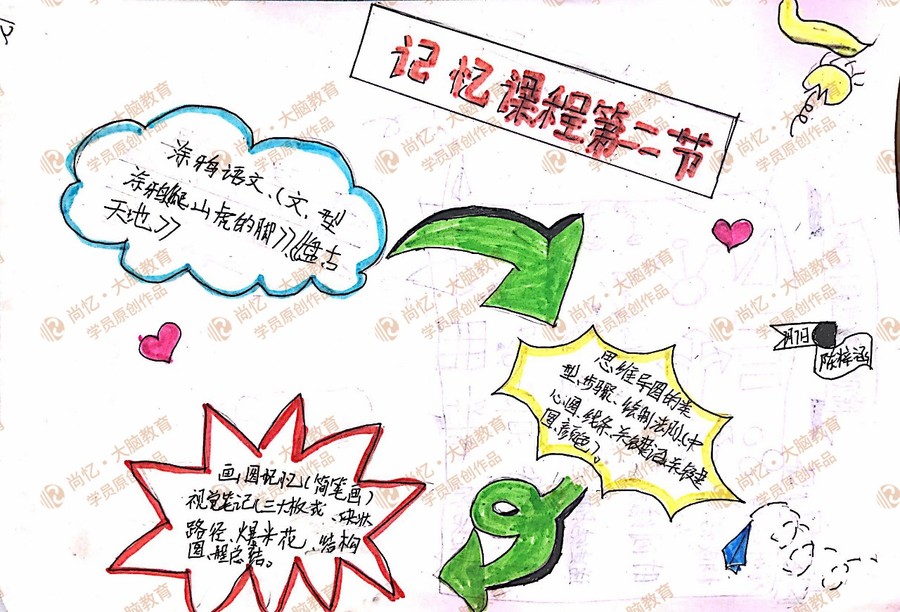 记忆课程第二节
涂鸦语文、(文、型
涂鸦《爬山虎的脚》、《盘古
天地》
思维导图的类
型、步骤、绘制法则(中
心图、线条、关键词、关键
图、颜色)。
月7日
陈梓涵
画图记忆(简笔画)
视觉笔记(三大板式、块状
路径、爆米花、结构
图、总结。
尚忆·大脑教育
学员原创作品